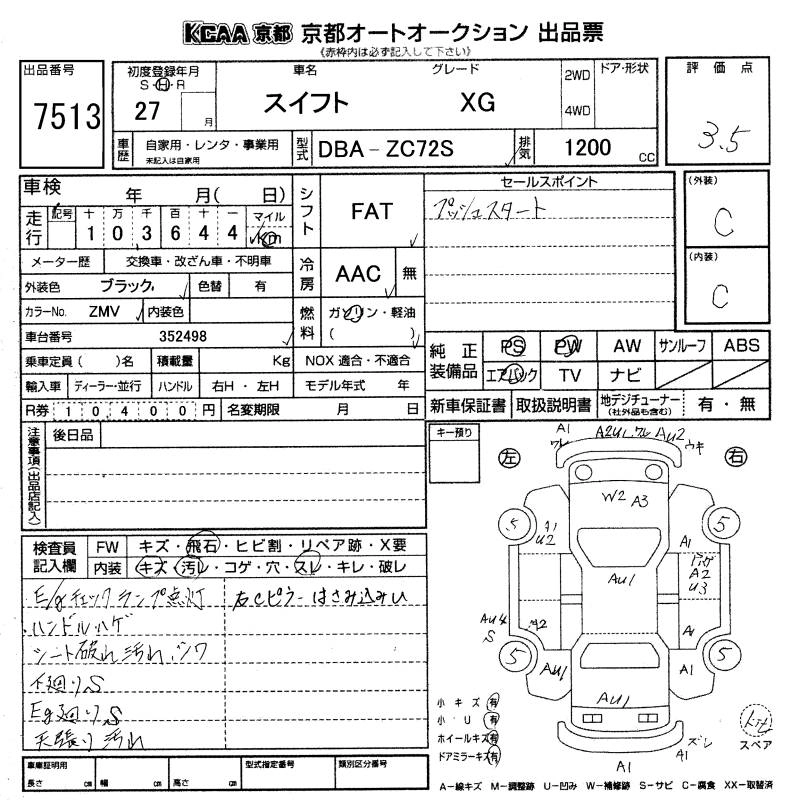 KCAA 京都 京都オートオークション 出品票
《赤枠内は必ず記入して下さい》
出品番号
7513
初度登録年月
S・H・R
27
月
車名
スイフト
グレード
XG
2WD
4WD
ドア・形状
評価点
3.5
車歴
自家用・レンタ・事業用
未記入は自家用
型式
DBA-ZC72S
排気
1200
CC
車検
年 月( 日)
走行
記号 十 万 千 百 十 一 マイル
1 0 3 6 4 4 Km
メーター歴
交換車・改ざん車・不明車
外装色
ブラック
色替
有
カラーNo.
ZMV
内装色
車台番号
352498
乗車定員( )名
積載量
Kg
NOX 適合・不適合
輸入車
ディーラー・並行
ハンドル
右H・左H
モデル年式 年
R券
10400円
名変期限
月 日
シフト
FAT
冷房
AAC
無
燃料
ガソリン・軽油
( )
セールスポイント
プッシュスタート
(外装)
C
(内装)
C
純正装備品
PS
PW
AW
サンルーフ
ABS
エアバック
TV
ナビ
新車保証書
取扱説明書
地デジチューナー
(社外品も含む)
有・無
注意事項(出品店記入)
後日品
キー預り
検査員記入欄
FW
キズ・飛石・ヒビ割・リペア跡・X要
内装
キズ・汚レ・コゲ・穴・スレ・キレ・破レ
・E/gチェックランプ点灯 右Cピラーはさみ込みい
・ハンドルハゲ
シート破れ 汚れ シワ
下廻りS
Eg廻りS
天張り汚れ
車輌証明用
長さ cm
幅 cm
高さ cm
型式指定番号
類別区分番号
左
右
A1
ワレ
A2U1 ワレ AU2
ウキ
W2 A3
5
5
A1
U2
A1
AU1
A2
U3
AU4
S
A2
A1
5
5
AU1
A1
AU1
ズレ
A1
A1
小キズ 有
小U 有
ホイールキズ 有
ドアミラーキズ 有
スペア
A-線キズ M-調整跡 U-凹み W-補修跡 S-サビ C-腐食 XX-取替済